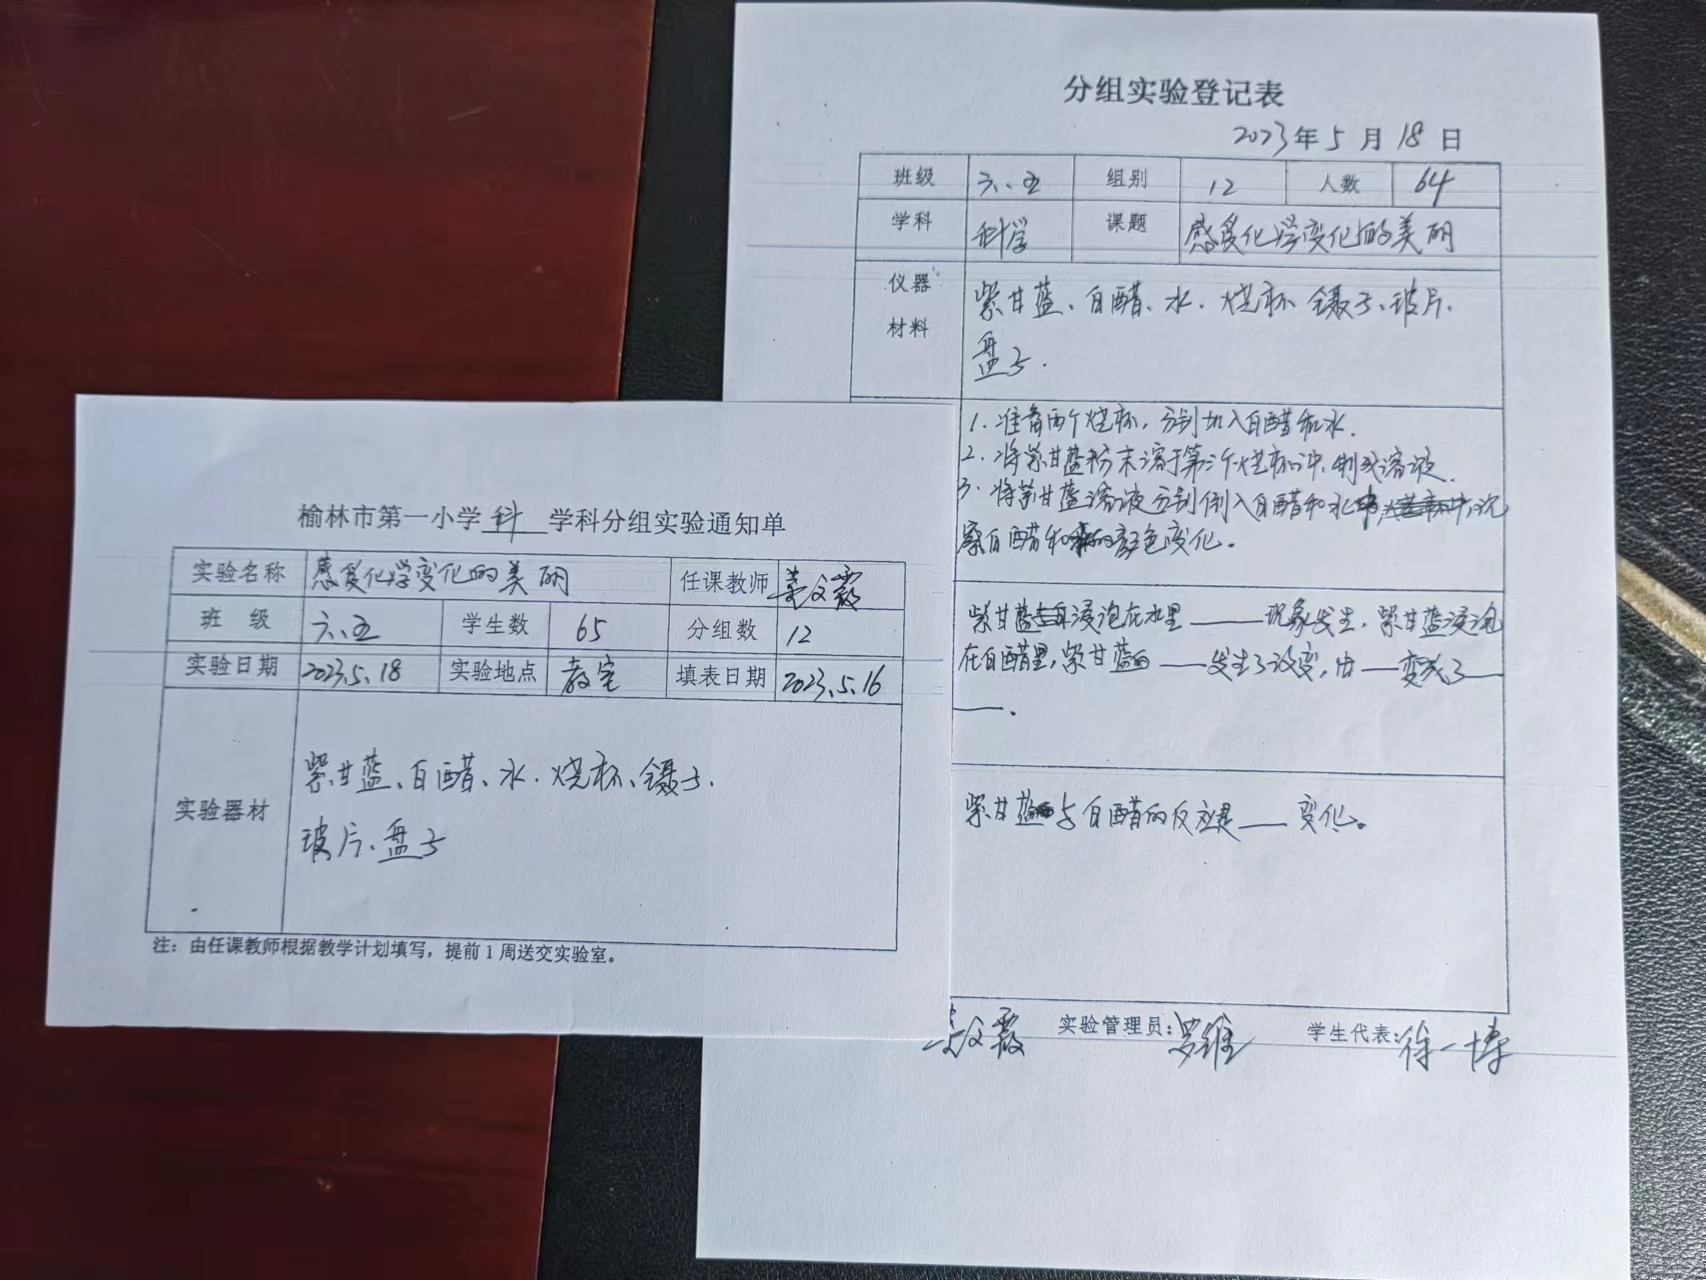 分组实验登记表
2023年5月18日
班级 六、五 组别 12 人数 64
学科 科学 课题 感受化学变化的美丽
仪器材料 紫甘蓝、白醋、水、烧杯 镊子、玻片、
盘子.
1. 准备两个烧杯，分别加入白醋和水.
2. 将紫甘蓝粉末溶于第三个烧杯中，制成溶液.
3. 将紫甘蓝溶液分别倒入白醋和水中，观
察白醋和水的颜色变化。
紫甘蓝浸泡在水里——现象发生，紫甘蓝浸泡
在白醋里，紫甘蓝的——发生了改变，由——变成了——
——.
紫甘蓝与白醋的反应是——变化。
文霞 实验管理员：罗维 学生代表：徐一博
榆林市第一小学 科 学科分组实验通知单
实验名称 感受化学变化的美丽 任课教师 文霞
班 级 六、五 学生数 65 分组数 12
实验日期 2023.5.18 实验地点 教室 填表日期 2023.5.16
实验器材 紫甘蓝、白醋、水、烧杯、镊子.
玻片、盘子
注：由任课教师根据教学计划填写，提前1周送交实验室。